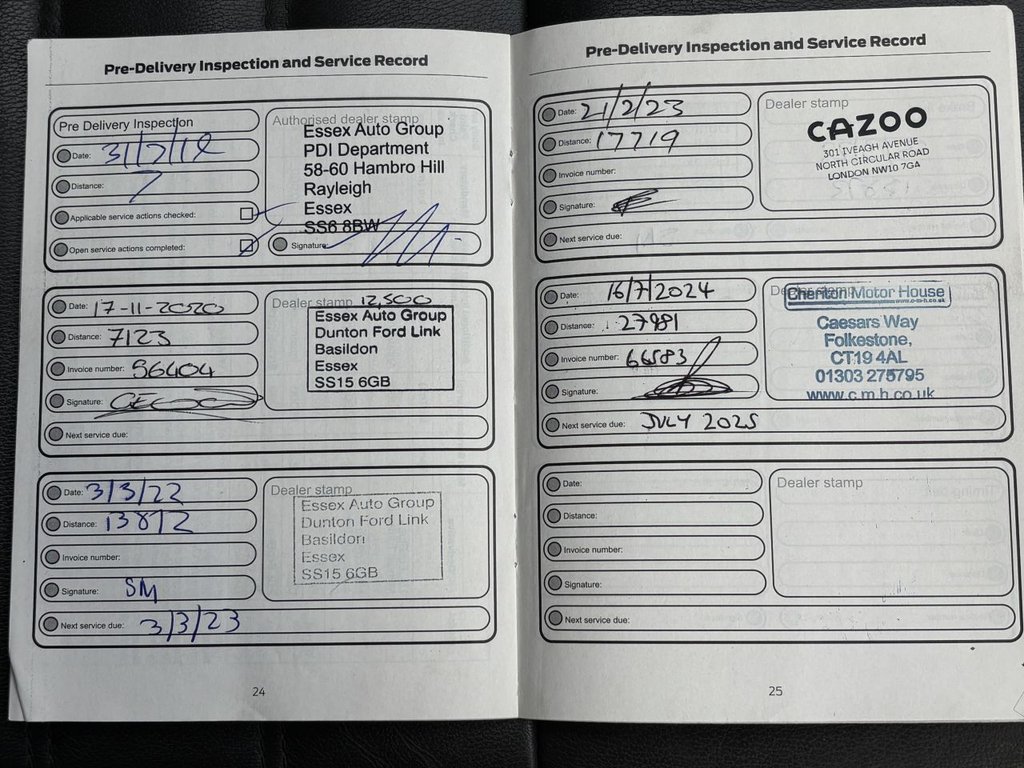 Pre-Delivery Inspection and Service Record
Pre Delivery Inspection
Date: 31/7/18
Distance: 7
Applicable service actions checked:
Open service actions completed:
Authorised dealer stamp
Essex Auto Group
PDI Department
58-60 Hambro Hill
Rayleigh
Essex
SS6 8BW
Signature
Date: 17-11-2020
Distance: 7123
Invoice number: 56404
Signature:
Next service due:
Dealer stamp 12,500
Essex Auto Group
Dunton Ford Link
Basildon
Essex
SS15 6GB
Date: 3/3/22
Distance: 13872
Invoice number:
Signature: SM
Next service due: 3/3/23
Dealer stamp
Essex Auto Group
Dunton Ford Link
Basildon
Essex
SS15 6GB
24
Pre-Delivery Inspection and Service Record
Date: 21/2/23
Distance: 17719
Invoice number:
Signature:
Next service due:
Dealer stamp
CAZOO
301 IVEAGH AVENUE
NORTH CIRCULAR ROAD
LONDON NW10 7GA
Date: 16/7/2024
Distance: 27981
Invoice number: 66583
Signature:
Next service due: JULY 2025
Dealer stamp
Cheriton Motor House
www.c-m-h.co.uk
Caesars Way
Folkestone,
CT19 4AL
01303 275795
www.c.m.h.co.uk
Date:
Distance:
Invoice number:
Signature:
Next service due:
Dealer stamp
25